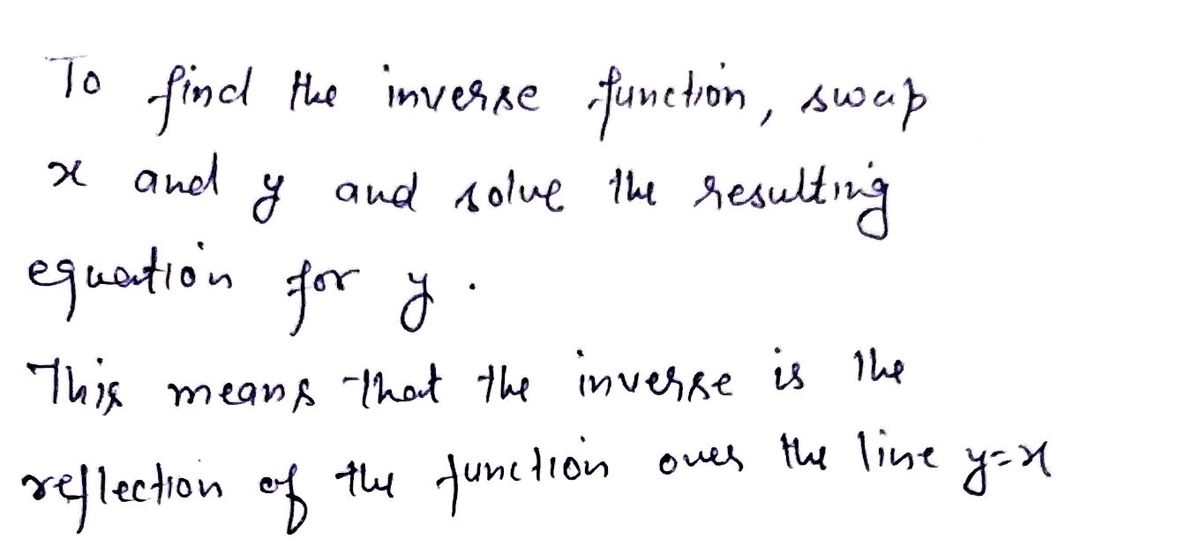 To find the inverse function, swap
x and y and solve the resulting
equation for y.
This means that the inverse is the
reflection of the function over the line y=x